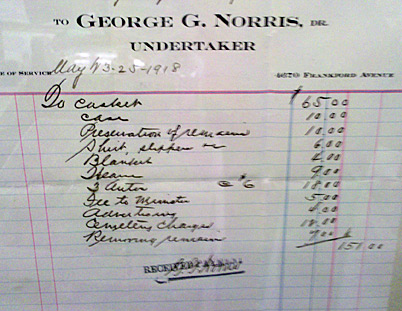 TO GEORGE G. NORRIS, DR.
UNDERTAKER
E OF SERVICE May 23-25-1918 4670 FRANKFORD AVENUE
To casket $65.00
case 10.00
Preservation of remains 10.00
Shirt, slippers 6.00
Blanket 4.00
Hearse 9.00
3 Autos @ $6 18.00
Fee to Minister 5.00
Advertising 4.00
Cemetery charges
Removing remains
151.00
RECEIVED PAYMENT